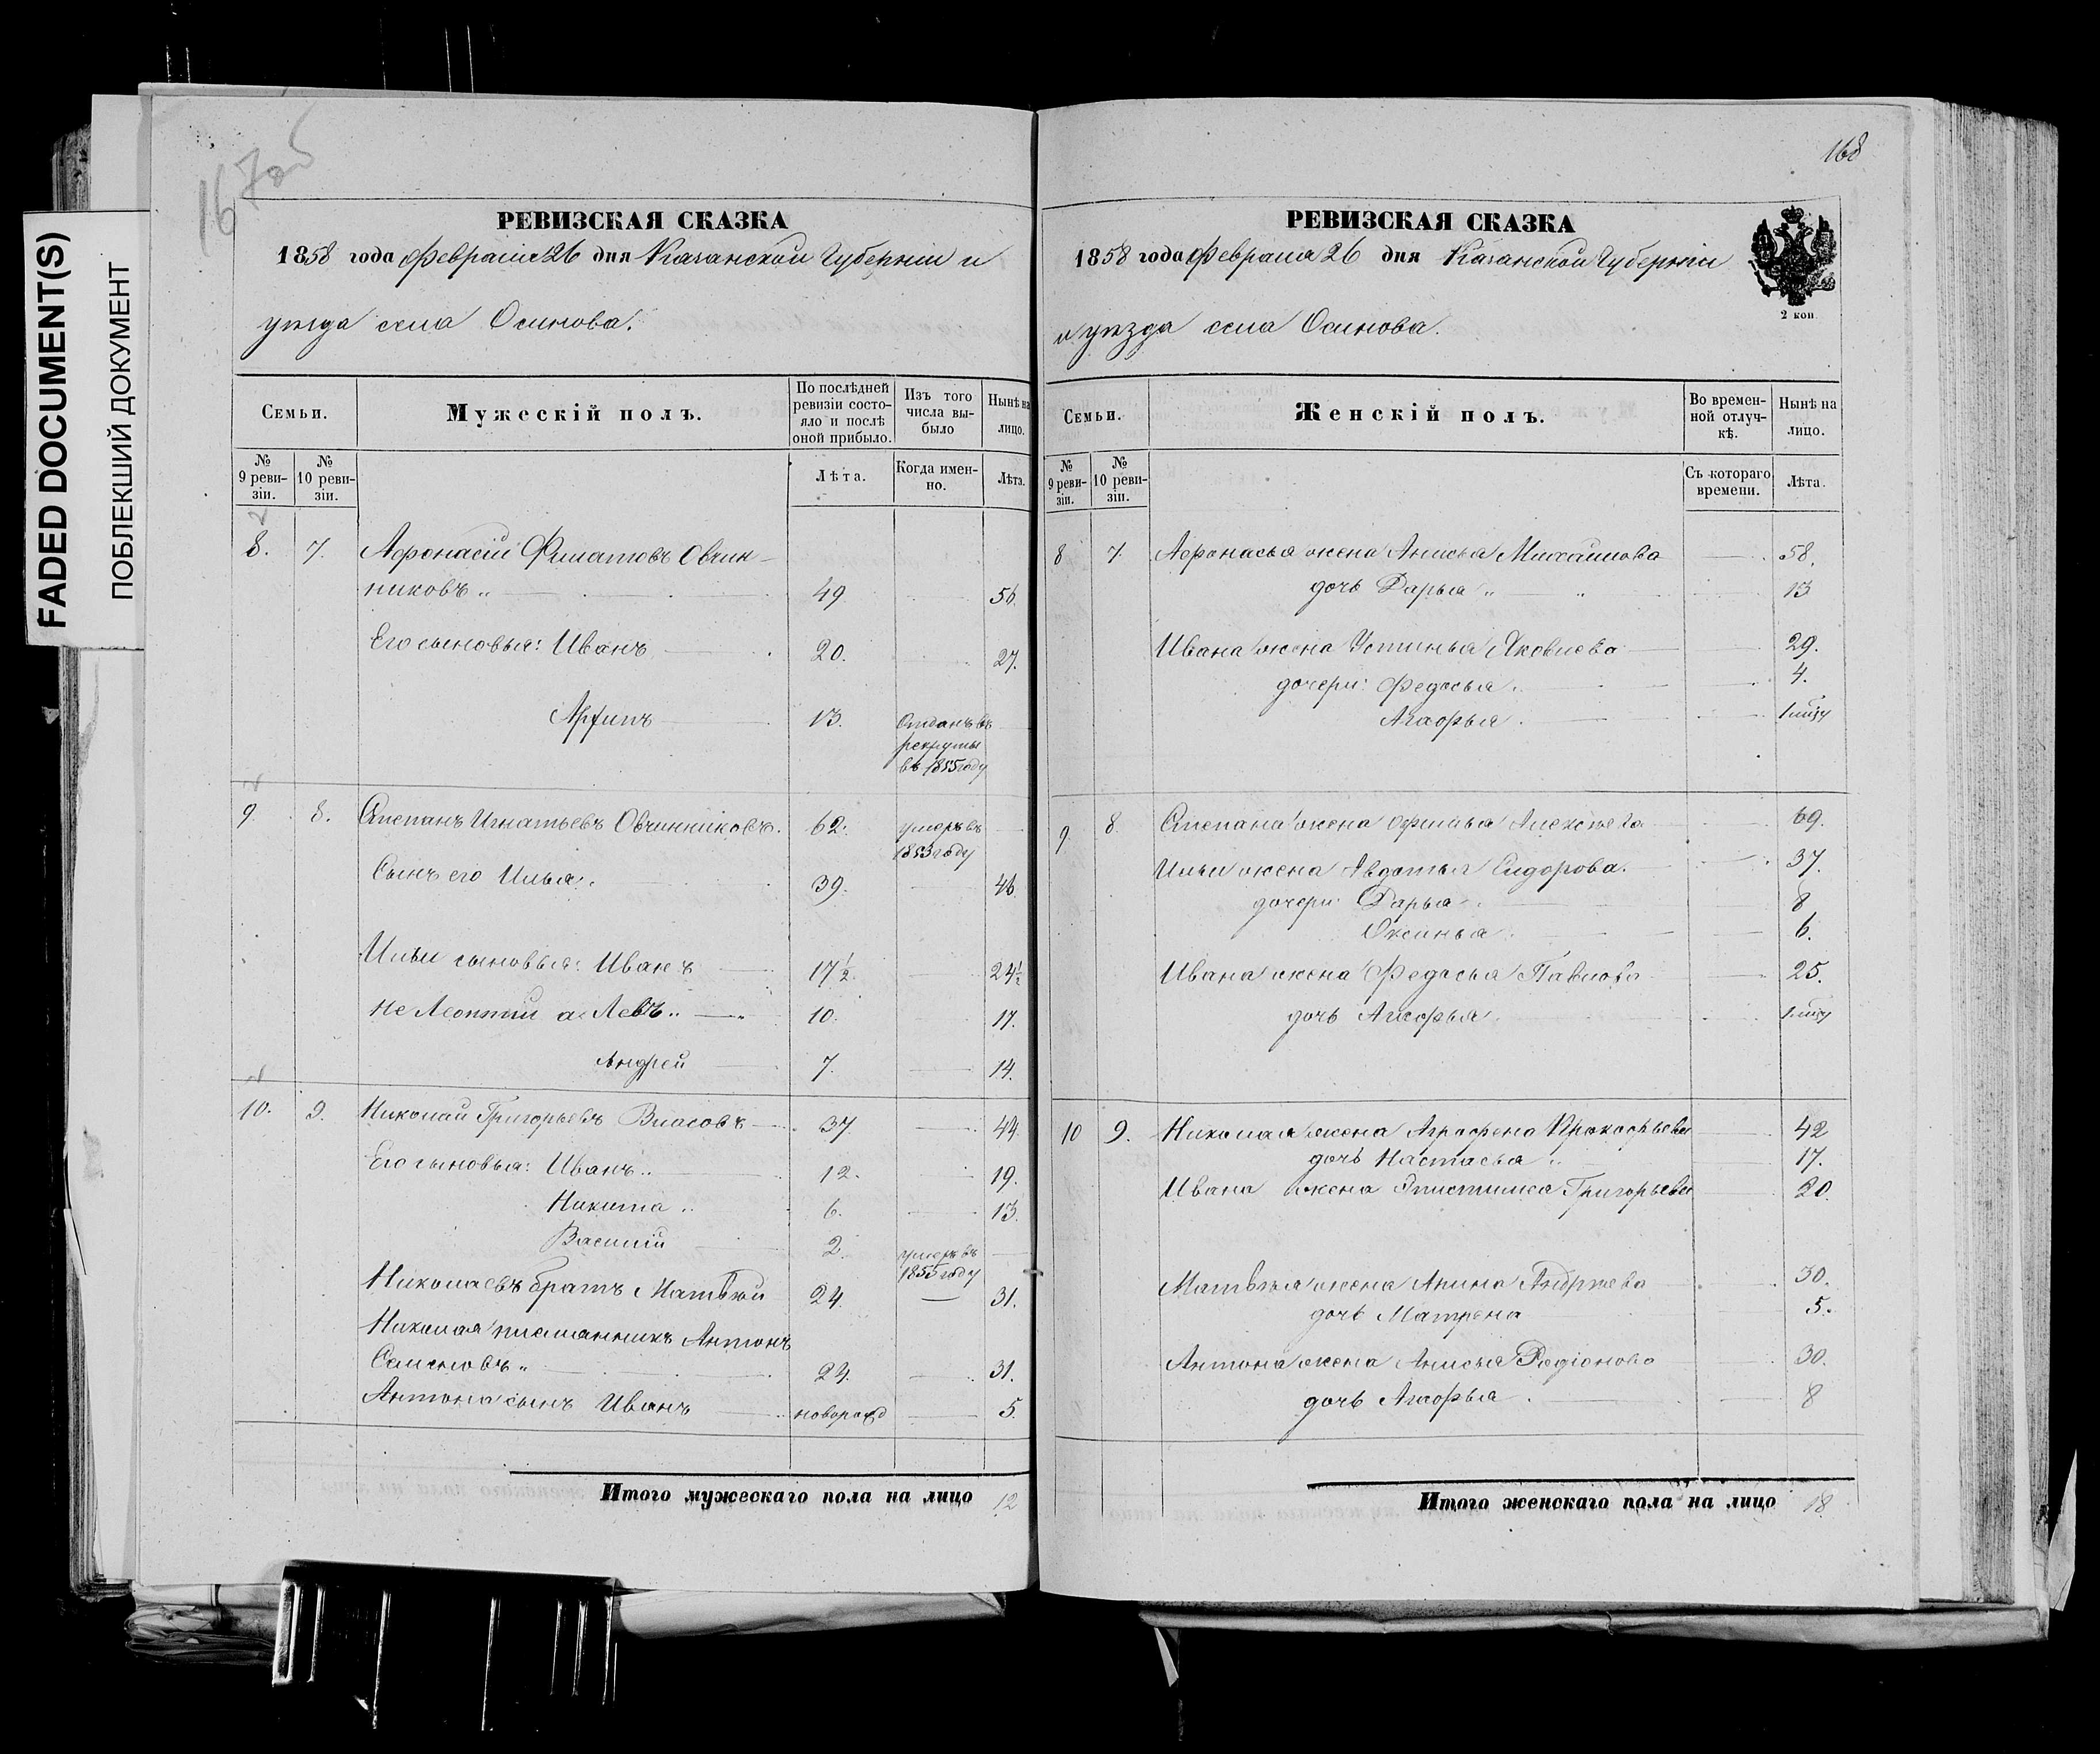 FADED DOCUMENT(S)
ПОБЛЕКШИЙ ДОКУМЕНТ
167об
РЕВИЗСКАЯ СКАЗКА
1858 года Февраля 26 дня Казанской Губерніи и
уѣзда села Осинова.
Семьи.
Мужескій полъ.
По послѣдней ревизіи состо-
яло и послѣ оной прибыло.
Изъ того числа вы-
было
Нынѣ на лицо.
№ 9 реви-
зіи.
№ 10 реви-
зіи.
Лѣта.
Когда имен-
но.
Лѣта.
8. 7. Афонасій Филатовъ Овчин-
никовъ 49 56.
Его сыновья: Иванъ 20. 27.
Архипъ 13. Отданъ въ
рекруты
въ 1855 году
9. 8. Степанъ Игнатьевъ Овчинниковъ. 62. умеръ въ
1853 году
Сынъ его Илья. 39. 46.
Ильи сыновья: Иванъ 17½. 24½
Не Леонтий а Левъ 10. 17.
Андрей 7. 14.
10. 9. Николай Григорьевъ Власовъ 37. 44.
Его сыновья: Иванъ 12. 19.
Никита 6. 13.
Василій 2. умеръ въ
1855 году
Николаевъ братъ Матвѣй 24. 31.
Николая племянникъ Антонъ
Семеновъ 24. 31.
Антона сынъ Иванъ новорожд 5.
Итого мужескаго пола на лицо 12
168
РЕВИЗСКАЯ СКАЗКА
1858 года Февраля 26 дня Казанской Губерніи
и уѣзда села Осинова.
2 коп
Семьи.
Женскій полъ.
Во времен-
ной отлуч-
кѣ.
Нынѣ на лицо.
№ 9 реви-
зіи.
№ 10 реви-
зіи.
Съ котораго времени.
Лѣта.
8 7. Афонасья жена Анисья Михайлова 58.
дочь Дарья 13
Ивана жена Устинья Яковлева 29.
дочери: Федосья 4.
Агафья
9. 8. Степана жена Алексѣева 69.
Ильи жена Авдотья Сидорова. 37.
дочери: Дарья 8
Оксинья 6.
Ивана жена Федосья Павлова 25.
дочь Агафья
10 9. Николая жена Аграфена Прокофьева 42
дочь Настасья 17.
Ивана жена Эпистимея Григорьева 20.
Матвѣя жена Анна Андрѣева 30.
дочь Матрена 5.
Антона жена Анисья Родіонова 30.
дочь Агафья 8
Итого женскаго пола на лицо 18.